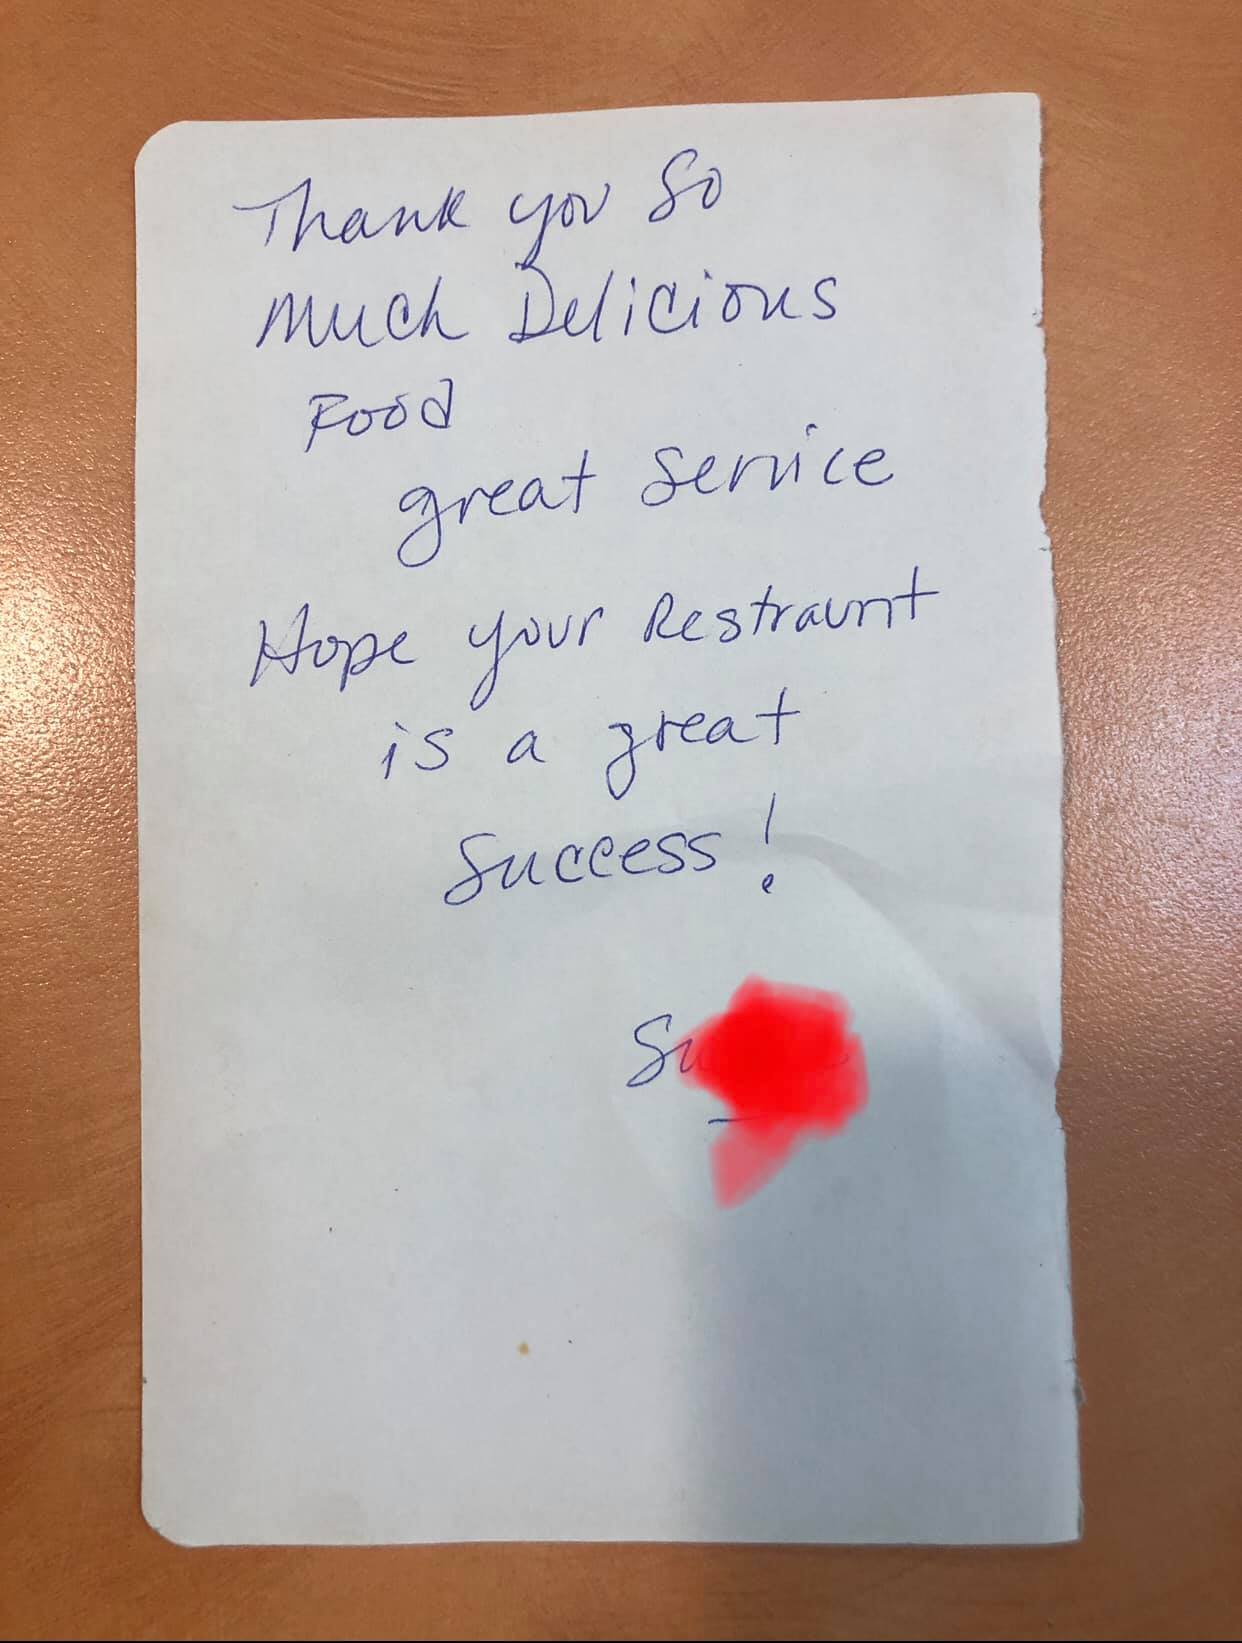 Thank you So
Much Delicious
Food
great Service
Hope your Restraunt
is a great
Success!